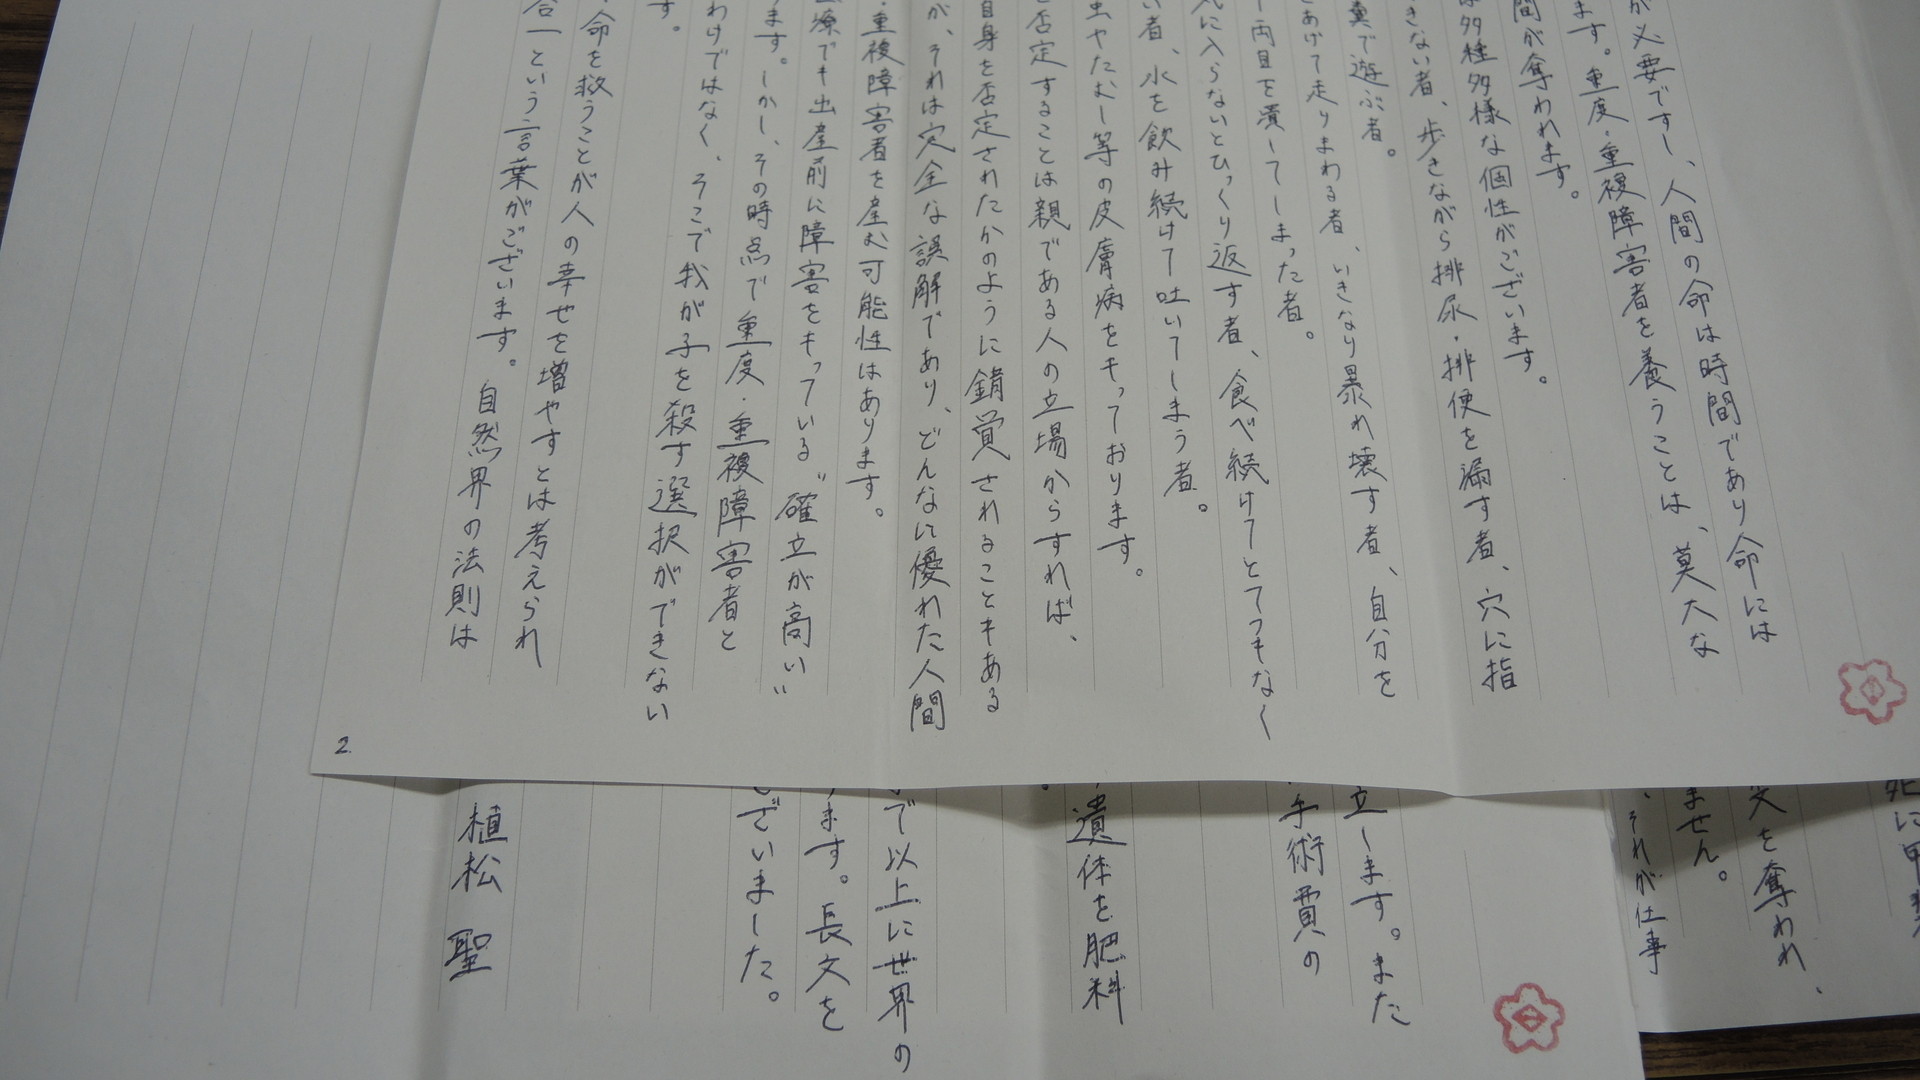 が必要ですし、人間の命は時間であり命には
ます。重度・重複障害者を養うことは、莫大な
間が奪われます。
は多種多様な個性がございます。
きない者、歩きながら排尿・排便を漏す者、穴に指
糞で遊ぶ者。
あげて走りまわる者、いきなり暴れ壊す者、自分を
両目を潰してしまった者。
に入らないとひっくり返す者、食べ続けてとてつもなく
い者、水を飲み続けて吐いてしまう者。
虫やたむし等の皮膚病をもっております。
否定することは親である人の立場からすれば、
自身を否定されたかのように錯覚されることもある
が、それは完全な誤解であり、どんなに優れた人間
・重複障害者を産む可能性はあります。
療でも出産前に障害をもっている“確立が高い”
ます。しかし、その時点で重度・重複障害者と
わけではなく、そこで我が子を殺す選択ができない
す。
命を救うことが人の幸せを増やすとは考えられ
合一という言葉がございます。自然界の法則は
2.
立します。また
手術費の
遺体を肥料
で以上に世界の
ます。長文を
ざいました。
植松 聖
を奪われ、
ません。
、それが仕事